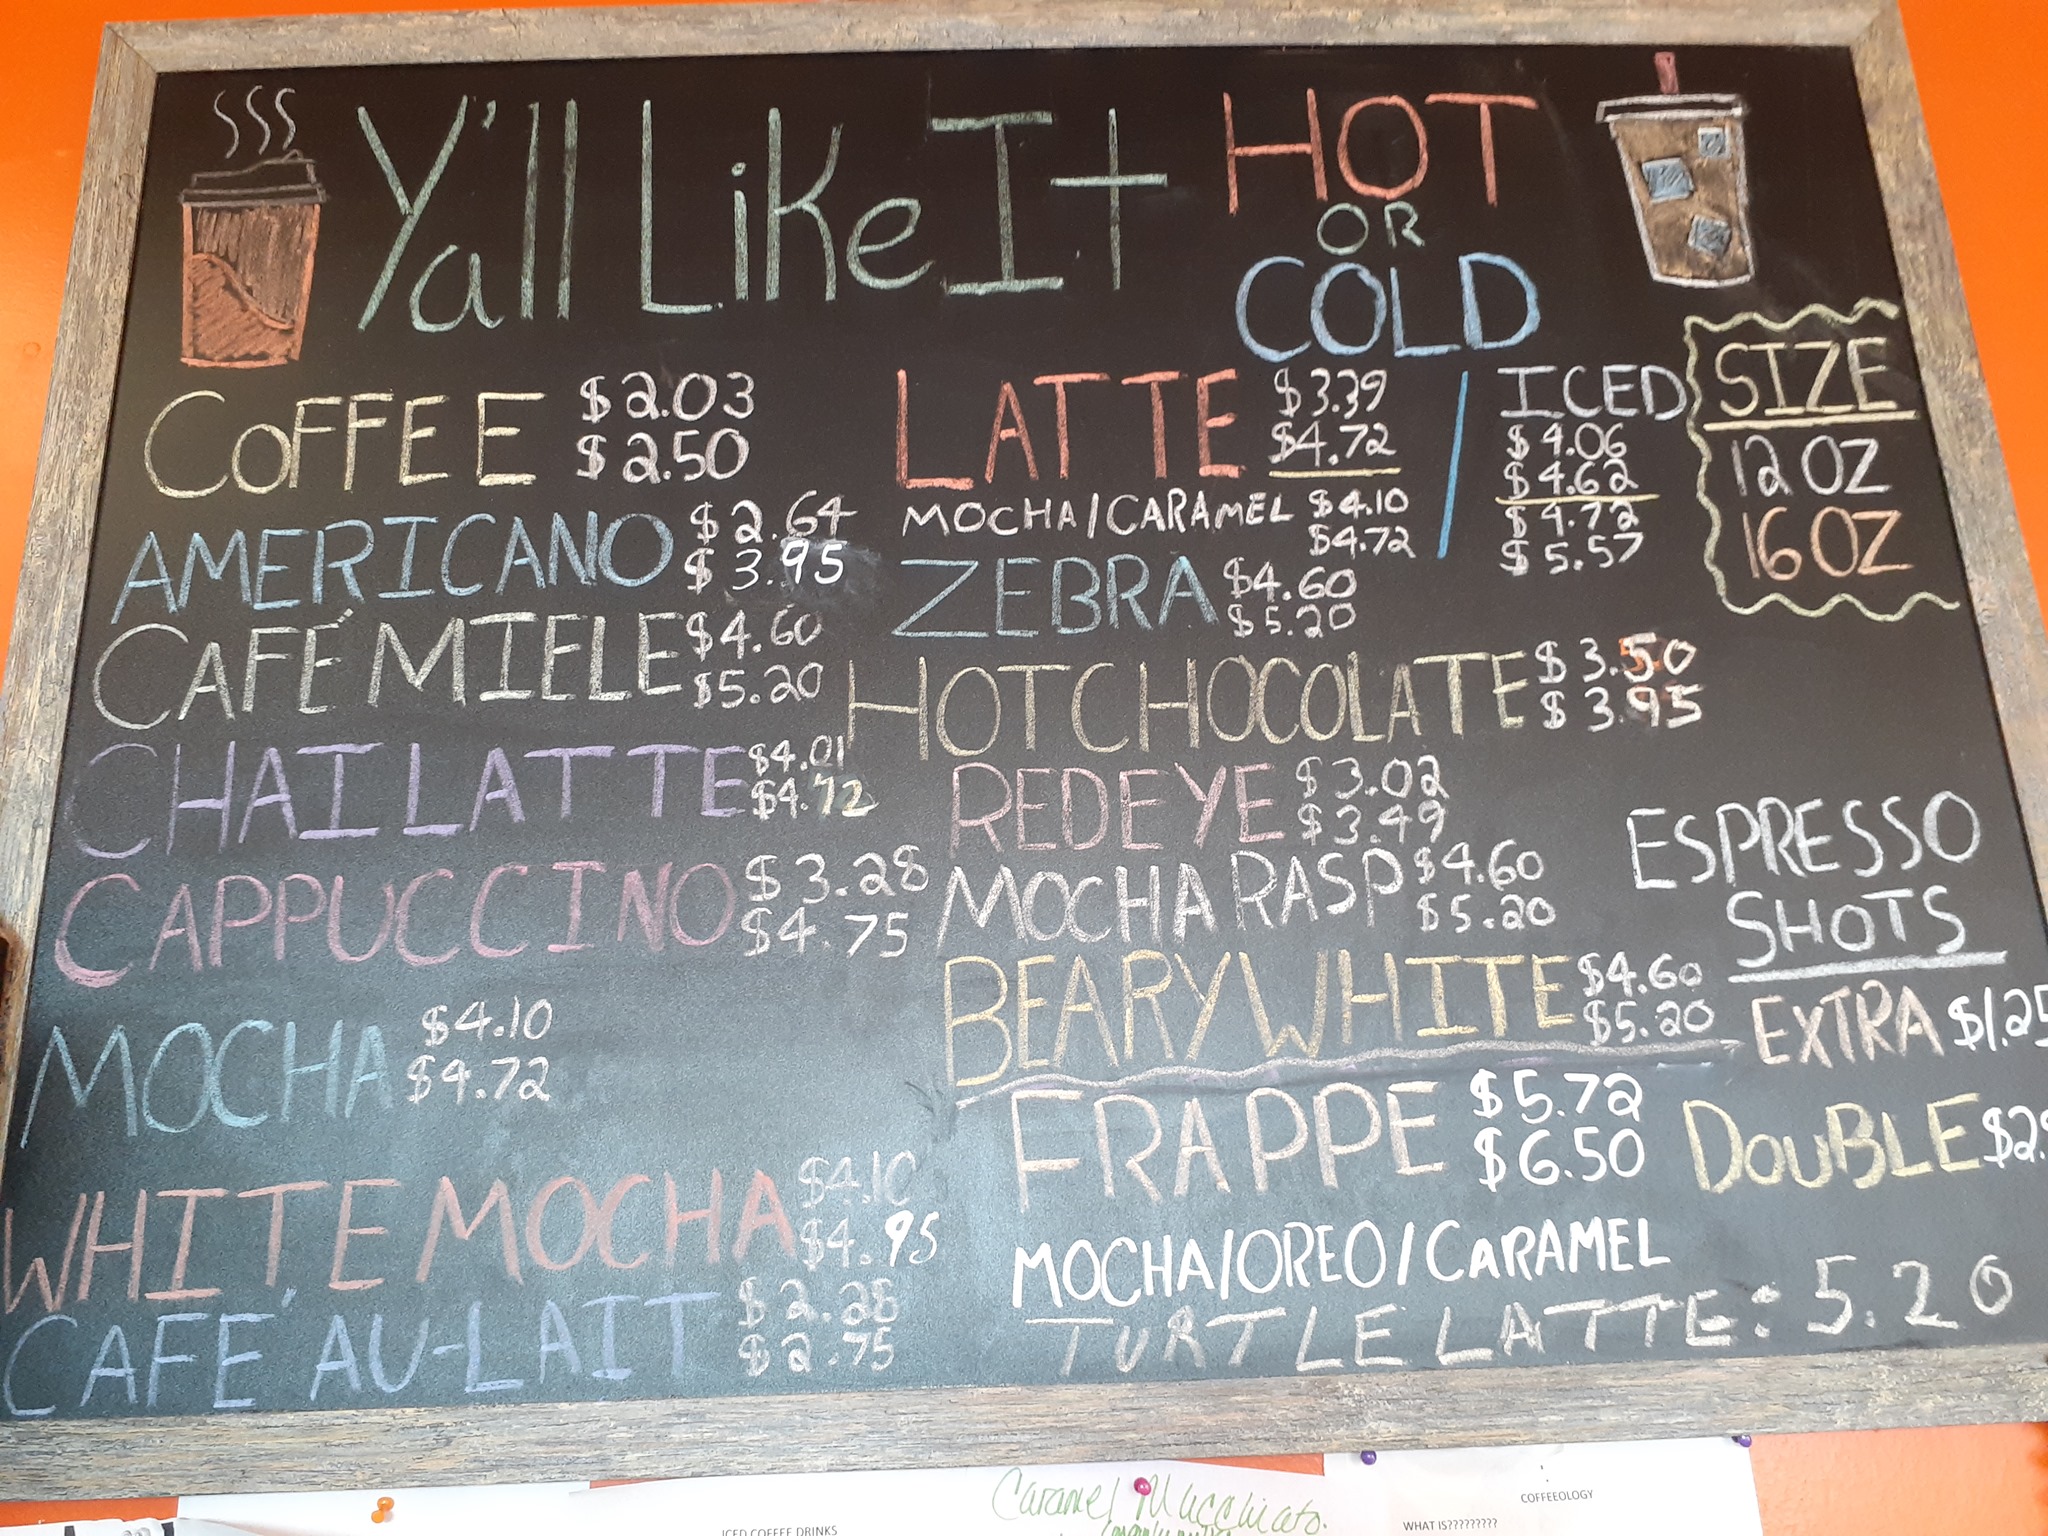 Ya'll Like It HOT
OR
COLD
COFFEE $2.03
$2.50
AMERICANO $2.64
$3.95
CAFÉ MIELE $4.60
$5.20
CHAI LATTE $4.01
$4.72
CAPPUCCINO $3.28
$4.75
MOCHA $4.10
$4.72
WHITE MOCHA $4.10
$4.95
CAFÉ AU-LAIT $2.28
$2.75
LATTE $3.39 / ICED
$4.72 $4.06
$4.62
MOCHA/CARAMEL $4.10 $4.72
$4.72 $5.57
ZEBRA $4.60
$5.20
HOT CHOCOLATE $3.50
$3.95
REDEYE $3.02
$3.49
MOCHA RASP $4.60
$5.20
BEARY WHITE $4.60
$5.20
FRAPPE $5.72
$6.50
MOCHA/OREO/CARAMEL
TURTLE LATTE: 5.20
SIZE
12 OZ
16 OZ
ESPRESSO
SHOTS
EXTRA $1.25
DOUBLE $2.
Caramel
ICED COFFEE DRINKS
COFFEEOLOGY
WHAT IS?????????